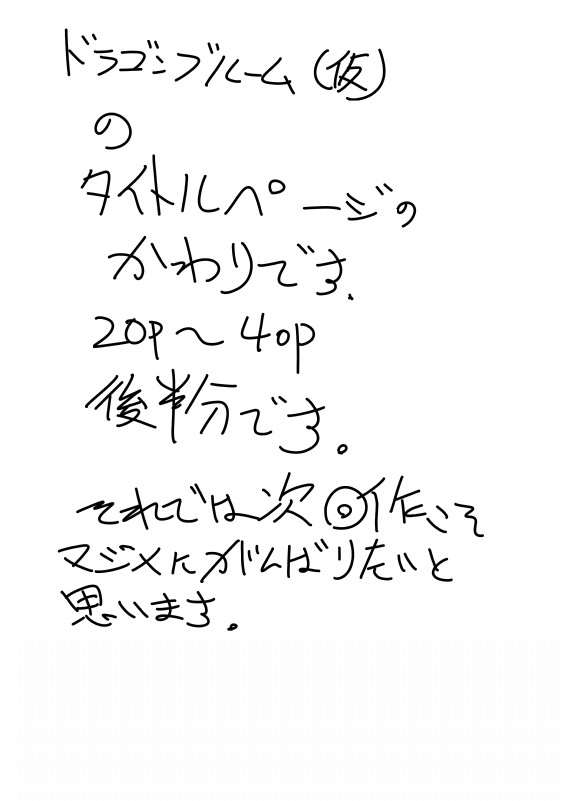 ドラゴンブルーム(仮)
の
タイトルページの
かわりです.
20p～40p
後半分です。
それでは次回作こそ
マジメにがんばりたいと
思います。